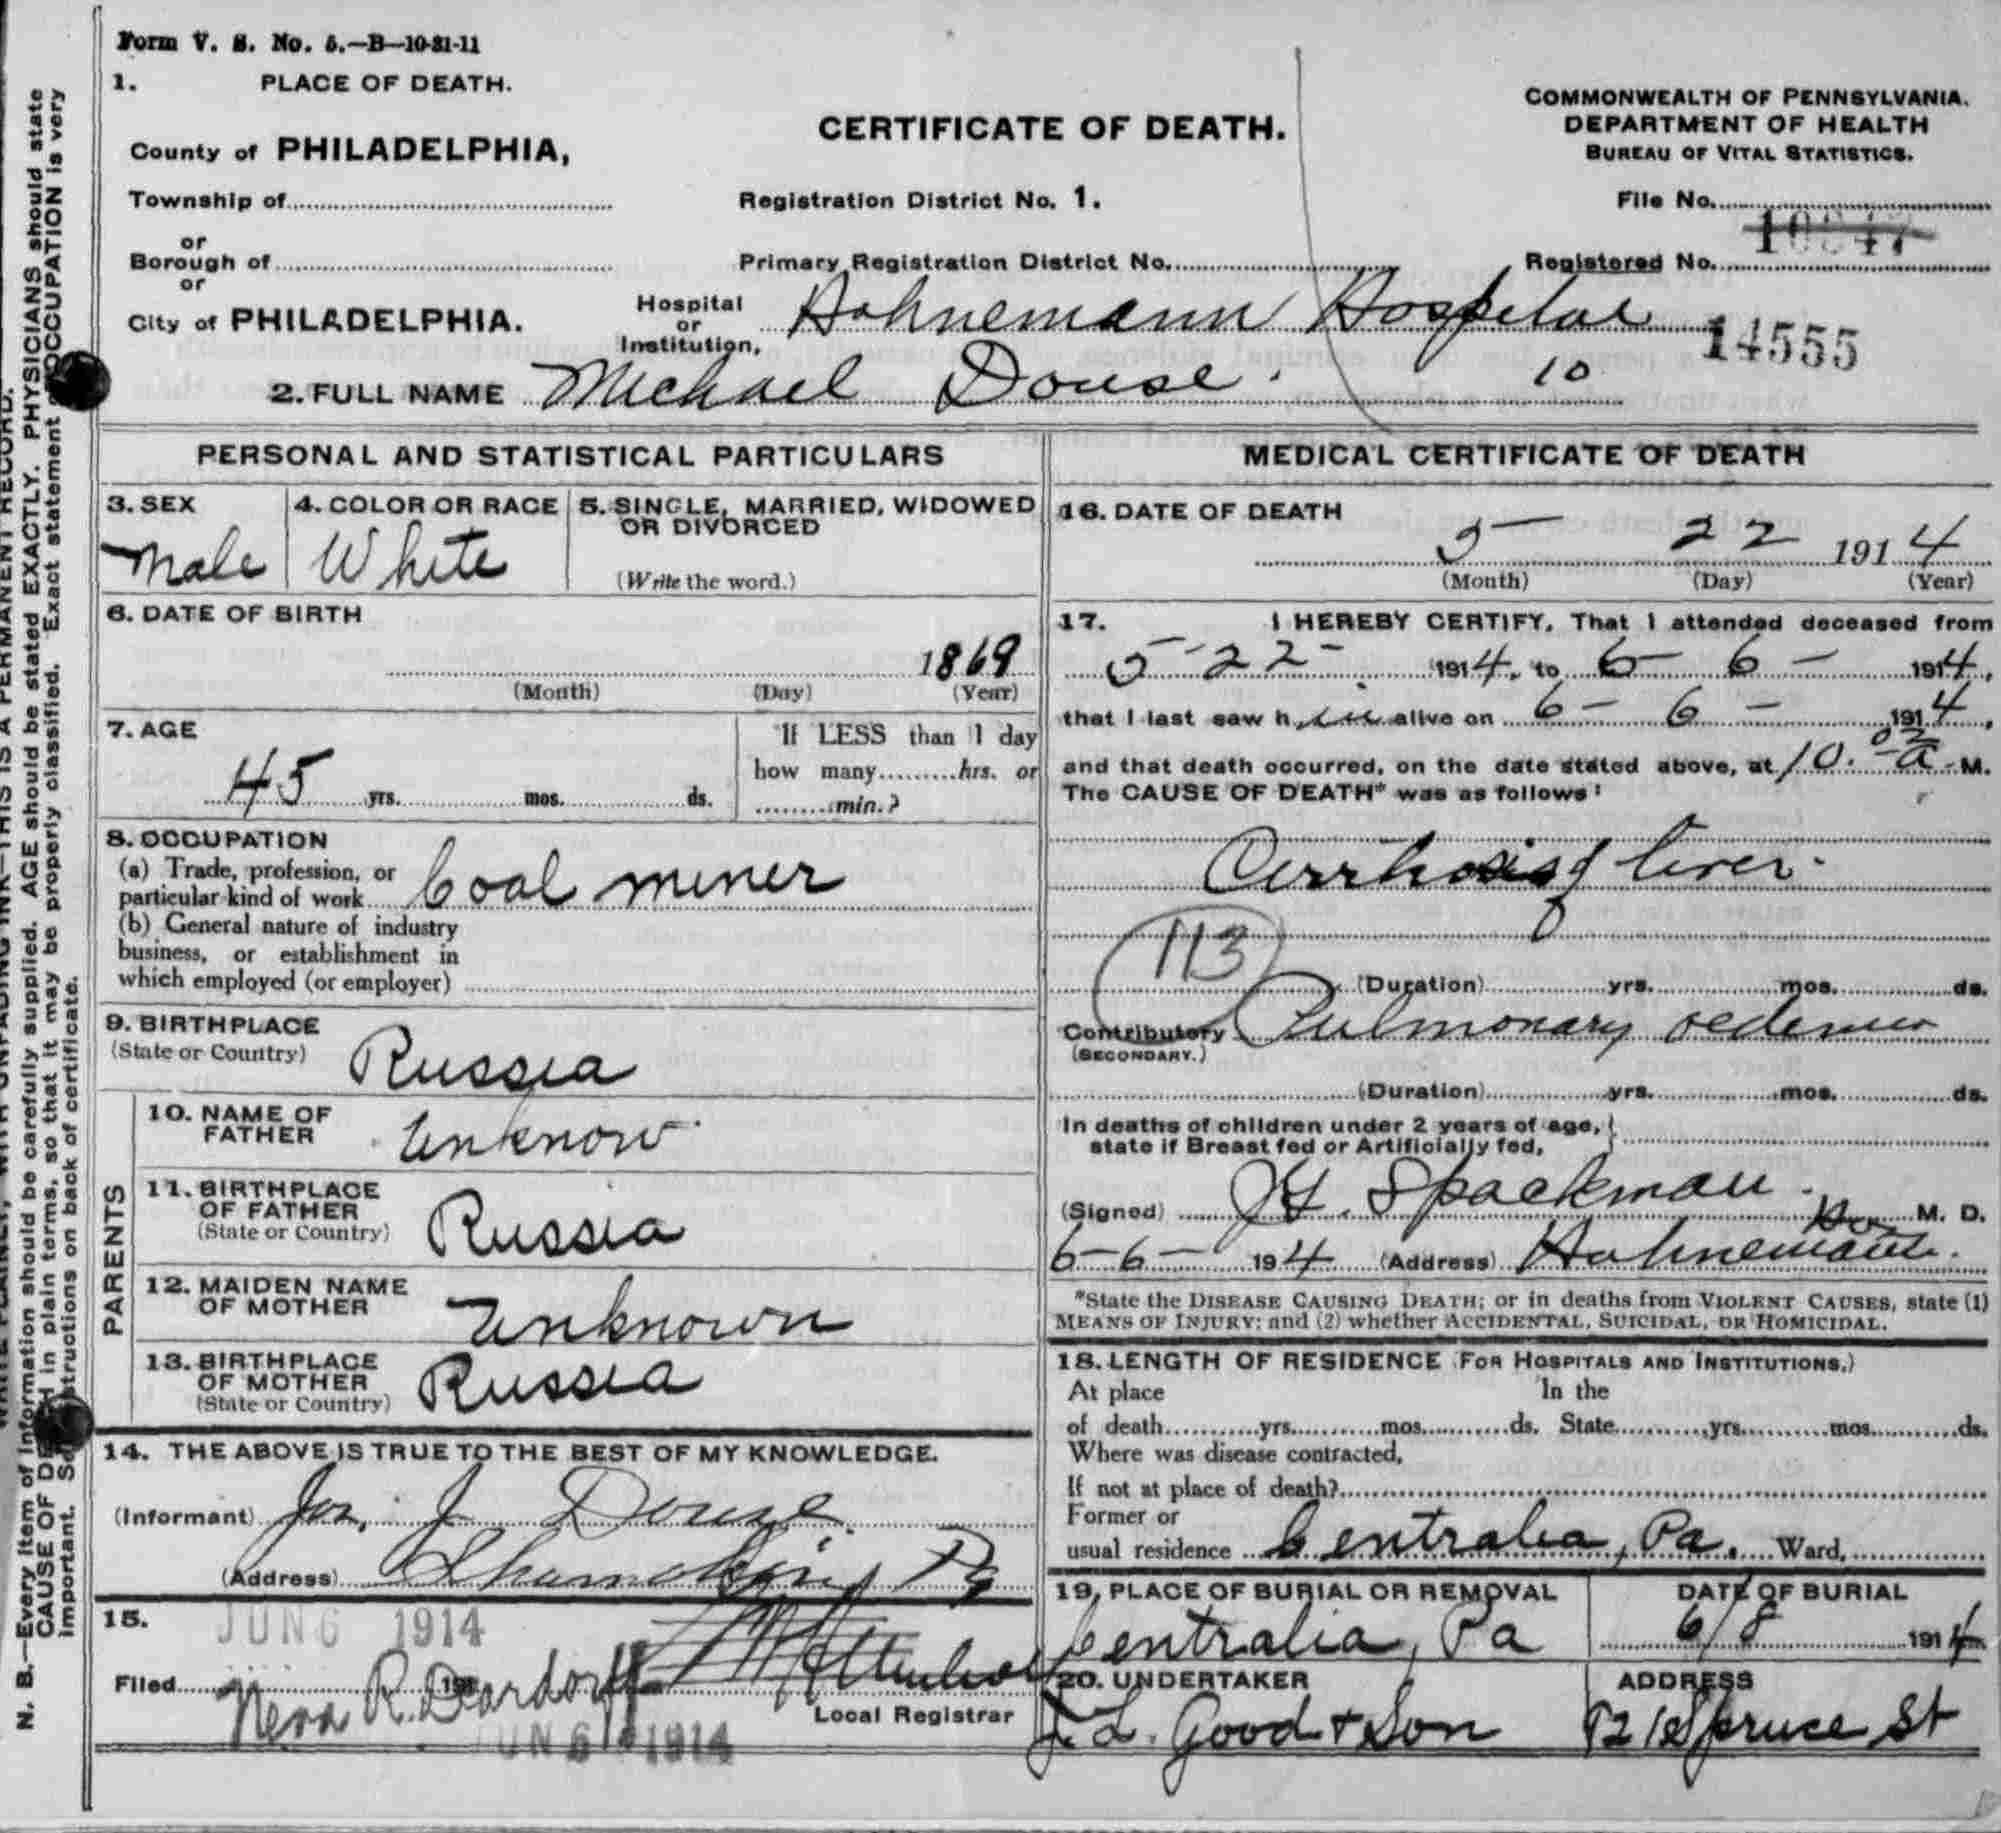 Form V. S. No. 5.—B—10-31-11
1. PLACE OF DEATH.
County of PHILADELPHIA,
Township of
or
Borough of
or
City of PHILADELPHIA.
CERTIFICATE OF DEATH.
Registration District No. 1.
Primary Registration District No.
Hospital or Institution, Hahnemann Hospital
COMMONWEALTH OF PENNSYLVANIA.
DEPARTMENT OF HEALTH
BUREAU OF VITAL STATISTICS.
File No.
Registered No. 10947
14555
2. FULL NAME Michael Douse. 10
PERSONAL AND STATISTICAL PARTICULARS
3. SEX
Male
4. COLOR OR RACE
White
5. SINGLE, MARRIED, WIDOWED
OR DIVORCED
(Write the word.)
6. DATE OF BIRTH
1869
(Month) (Day) (Year)
7. AGE
45 yrs. mos. ds.
If LESS than 1 day
how many hrs. or
min.?
8. OCCUPATION
(a) Trade, profession, or
particular kind of work Coal miner
(b) General nature of industry
business, or establishment in
which employed (or employer)
9. BIRTHPLACE
(State or Country) Russia
PARENTS
10. NAME OF
FATHER Unknow
11. BIRTHPLACE
OF FATHER
(State or Country) Russia
12. MAIDEN NAME
OF MOTHER Unknown
13. BIRTHPLACE
OF MOTHER
(State or Country) Russia
14. THE ABOVE IS TRUE TO THE BEST OF MY KNOWLEDGE.
(Informant) Jos. J Douse
(Address) Shamokin, Pa
15. JUN 6 1914
Filed 191
Neva R. Deardorff
Local Registrar
JUN 6 1914
MEDICAL CERTIFICATE OF DEATH
16. DATE OF DEATH
5 — 22 1914
(Month) (Day) (Year)
17. I HEREBY CERTIFY, That I attended deceased from
5-22- 1914, to 6- 6- 1914,
that I last saw him alive on 6- 6- 1914,
and that death occurred, on the date stated above, at 10. a M.
The CAUSE OF DEATH* was as follows:
Cirrhosis of liver.
113
(Duration) yrs. mos. ds.
Contributory Pulmonary oedema
(SECONDARY.)
(Duration) yrs. mos. ds.
In deaths of children under 2 years of age,
state if Breast fed or Artificially fed,
(Signed) Spackman M. D.
6-6- 1914 (Address) Hahnemann Ho
*State the DISEASE CAUSING DEATH; or in deaths from VIOLENT CAUSES, state (1)
MEANS OF INJURY; and (2) whether ACCIDENTAL, SUICIDAL, OR HOMICIDAL.
18. LENGTH OF RESIDENCE (FOR HOSPITALS AND INSTITUTIONS,)
At place In the
of death yrs. mos. ds. State yrs. mos. ds.
Where was disease contracted,
If not at place of death?
Former or
usual residence Centralia, Pa. Ward,
19. PLACE OF BURIAL OR REMOVAL
Centralia, Pa
DATE OF BURIAL
6/8 1914
20. UNDERTAKER
J. L. Good + Son
ADDRESS
921 Spruce St
N. B.—Every item of information should be carefully supplied. AGE should be stated EXACTLY. PHYSICIANS should state
CAUSE OF DEATH in plain terms, so that it may be properly classified. Exact statement of OCCUPATION is very
important. See instructions on back of certificate.